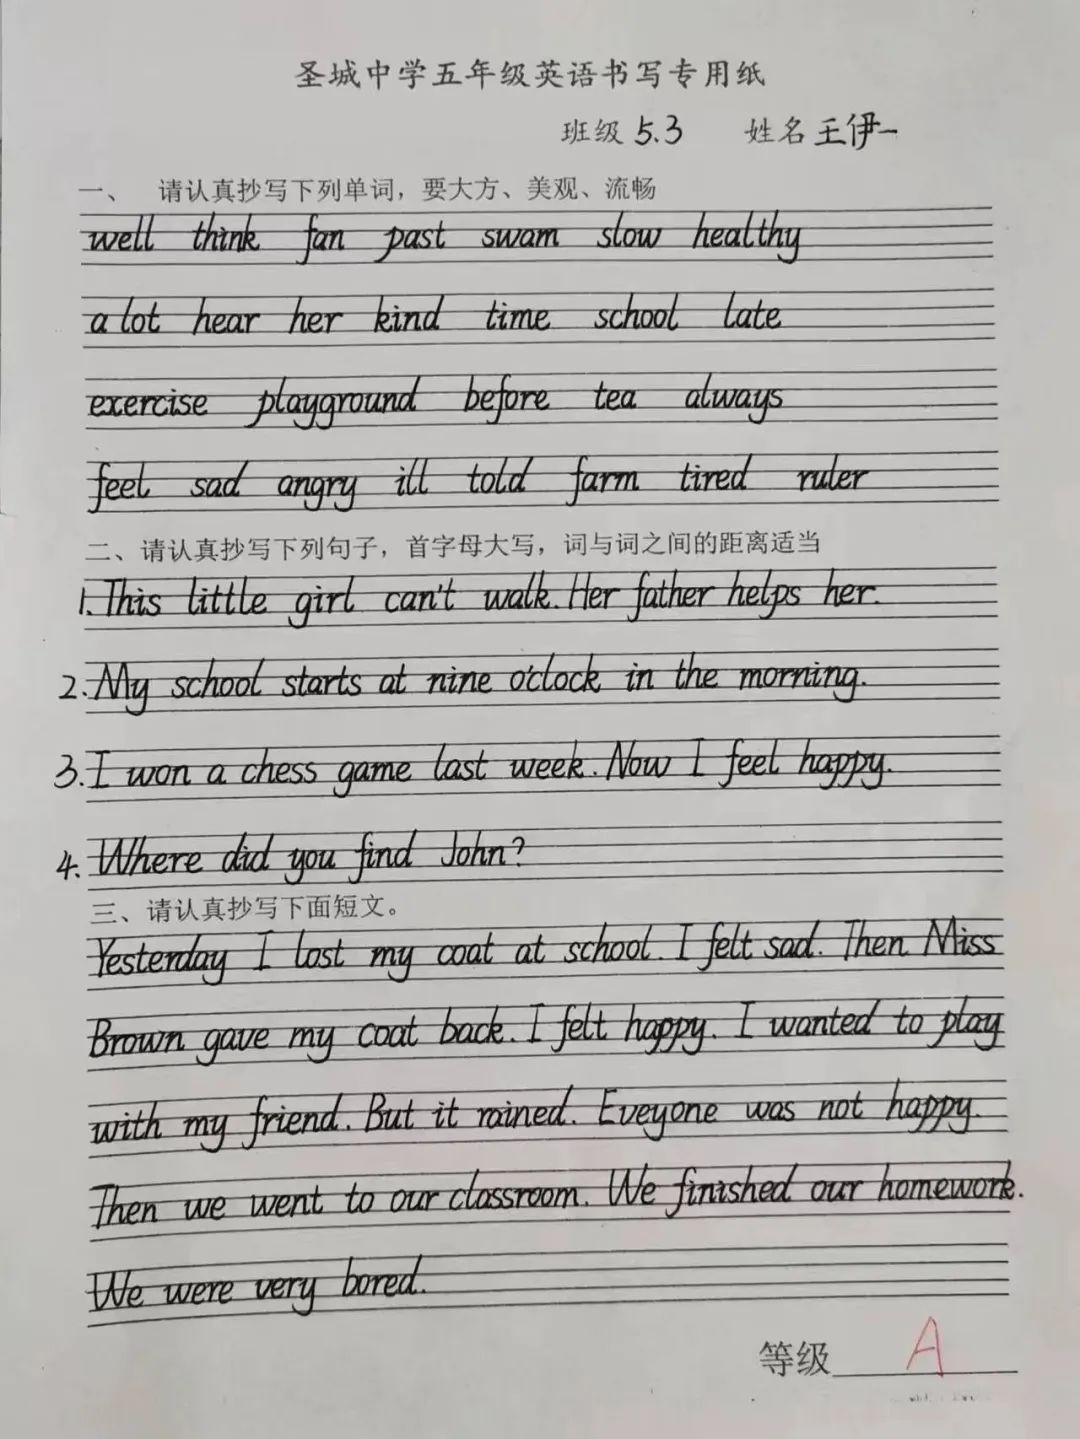 圣城中学五年级英语书写专用纸
班级 5.3 姓名 王伊一
一、 请认真抄写下列单词，要大方、美观、流畅
well think fan past swam slow healthy
a lot hear her kind time school late
exercise playground before tea always
feel sad angry ill told farm tired ruler
二、请认真抄写下列句子，首字母大写，词与词之间的距离适当
1. This little girl can't walk. Her father helps her.
2. My school starts at nine o'clock in the morning.
3. I won a chess game last week. Now I feel happy.
4. Where did you find John?
三、请认真抄写下面短文。
Yesterday I lost my coat at school. I felt sad. Then Miss
Brown gave my coat back. I felt happy. I wanted to play
with my friend. But it rained. Eveyone was not happy.
Then we went to our classroom. We finished our homework.
We were very bored.
等级 A